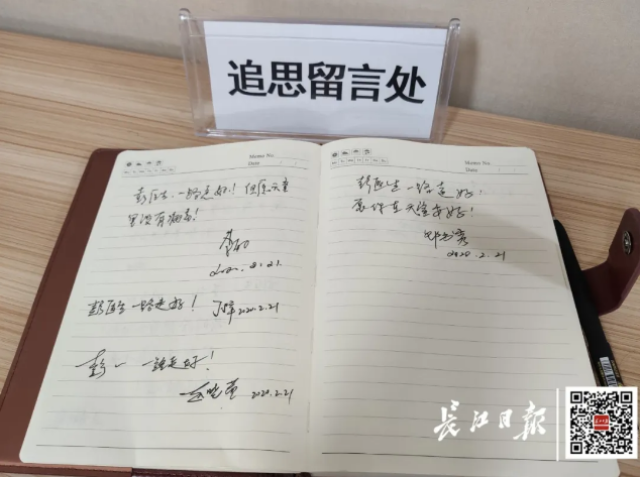 追思留言处
Memo No.
Date
彭医生,一路走好!但愿天堂
里没有病毒!
2020.2.21.
彭医生一路走好! 2020.2.21
彭 一路走好!
2020.2.21
Memo No.
Date
彭医生一路走好!
愿你在天堂安好!
2020.2.21
长江日报